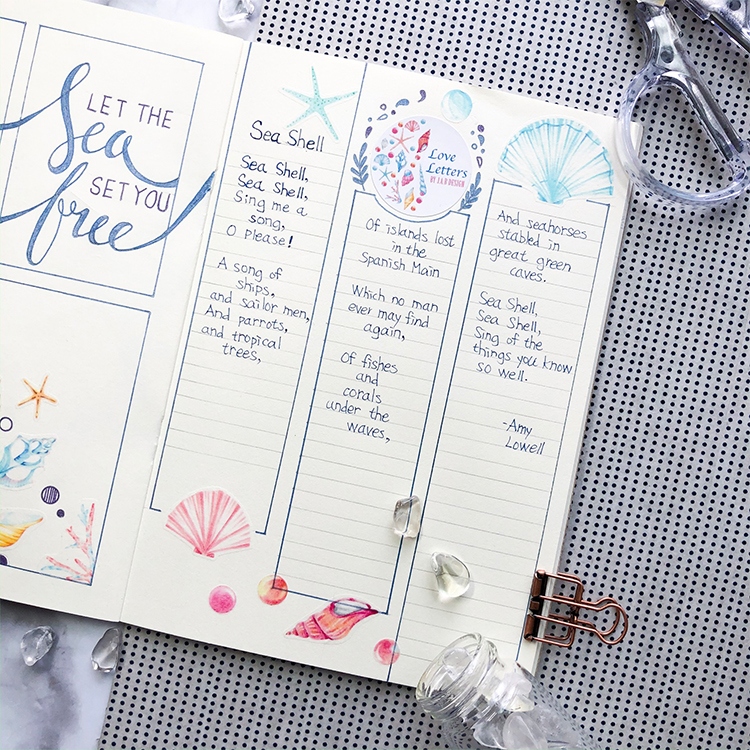 LET THE
Sea
SET YOU
free
Sea Shell
Sea Shell,
Sea Shell,
Sing me a
song,
O Please!
A song of
ships,
and sailor men,
And parrots,
and tropical
trees,
Love
Letters
BY LA B DESIGN
Of islands lost
in the
Spanish Main
Which no man
ever may find
again,
Of fishes
and
corals
under the
waves,
And seahorses
stabled in
great green
caves.
Sea Shell,
Sea Shell,
Sing of the
things you know
so well.
-Amy
Lowell